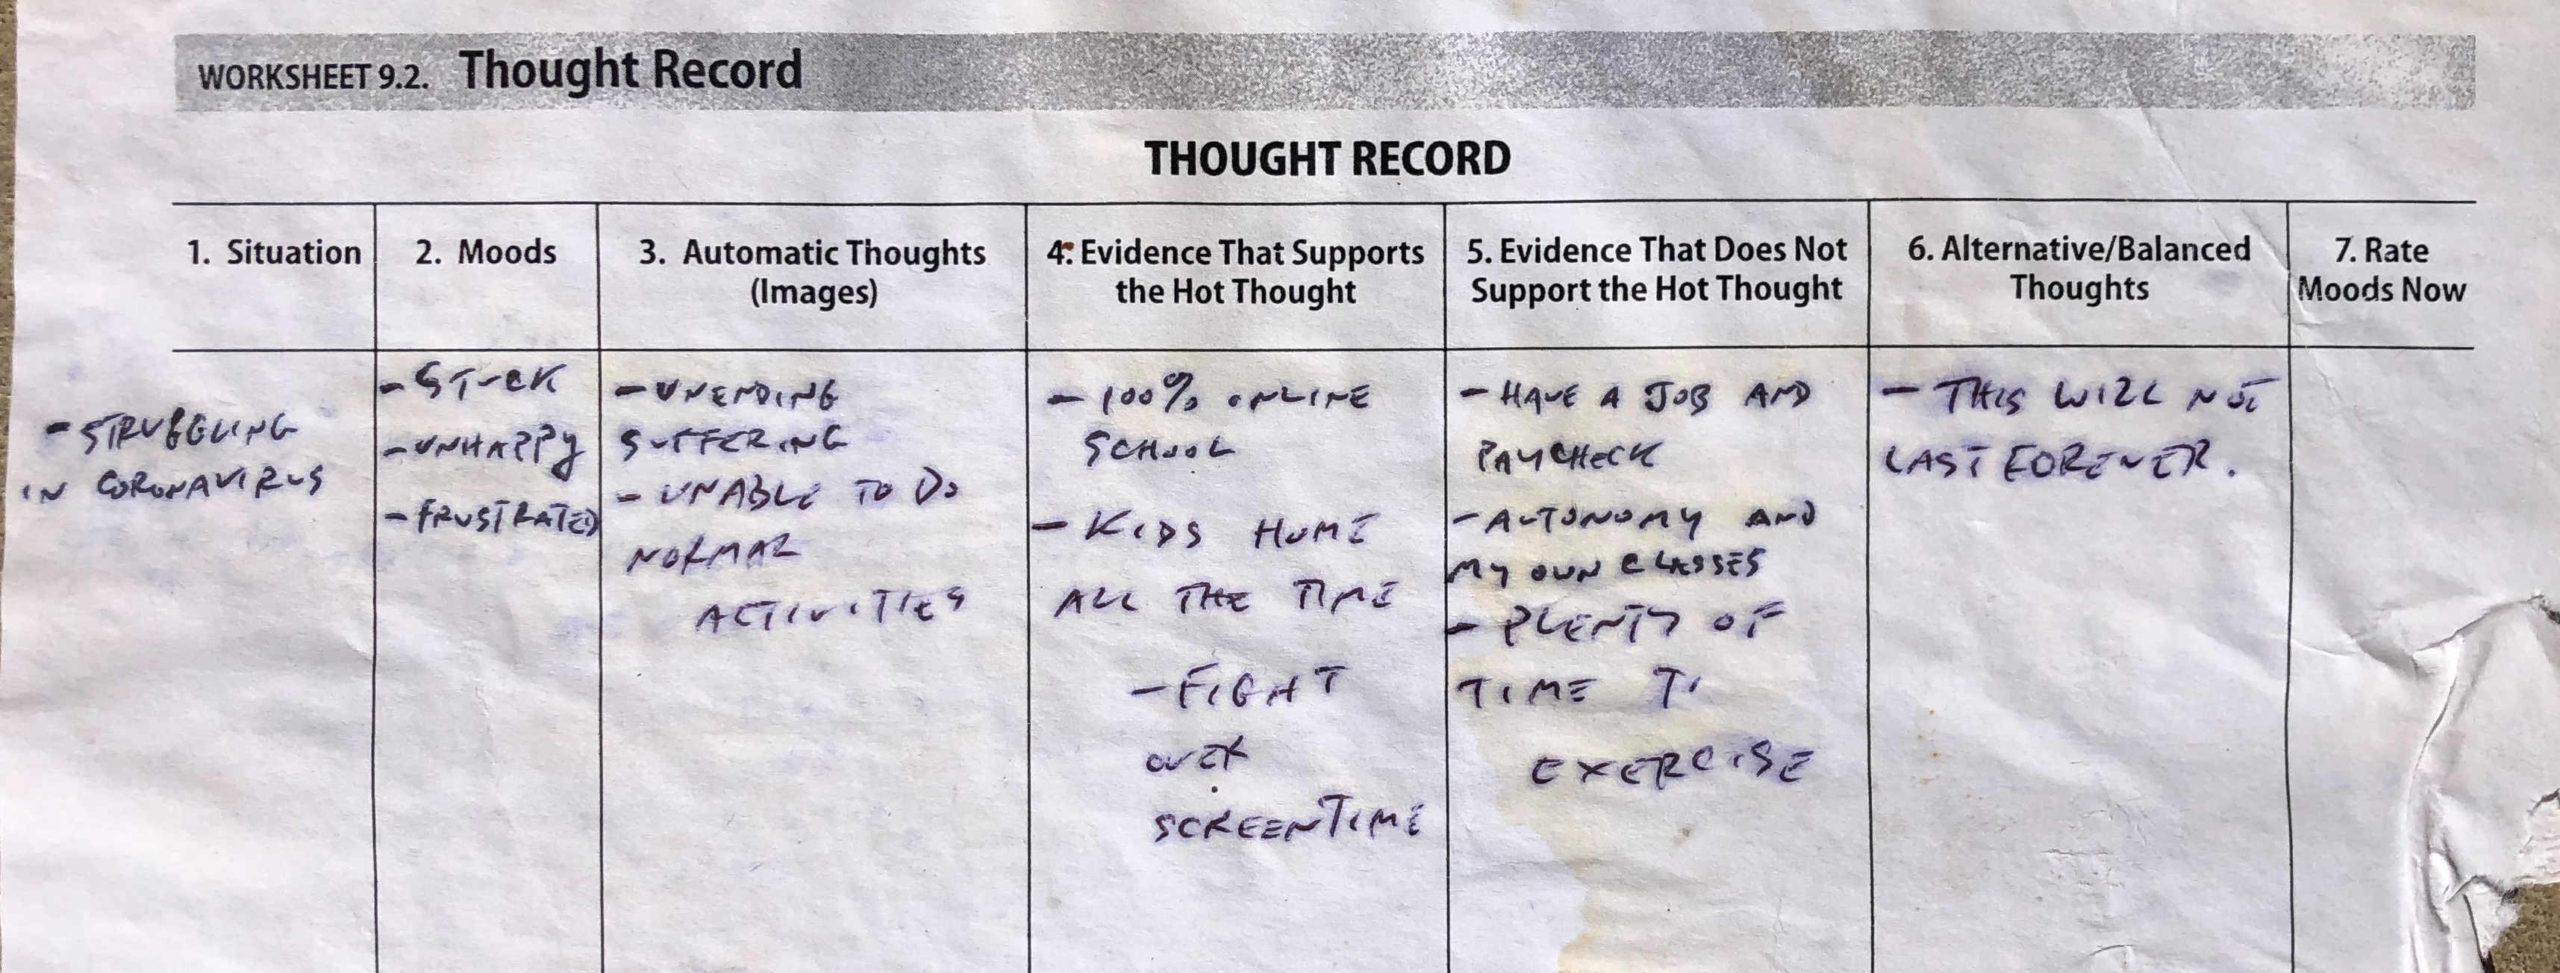 WORKSHEET 9.2. Thought Record
THOUGHT RECORD
1. Situation
2. Moods
3. Automatic Thoughts
(Images)
4. Evidence That Supports
the Hot Thought
5. Evidence That Does Not
Support the Hot Thought
6. Alternative/Balanced
Thoughts
7. Rate
Moods Now
- STRUGGLING
IN CORONAVIRUS
- STUCK
- UNHAPPY
- FRUSTRATED
- UNENDING
SUFFERING
- UNABLE TO DO
NORMAL
ACTIVITIES
- 100% ONLINE
SCHOOL
- KIDS HOME
ALL THE TIME
- FIGHT
OVER
SCREENTIME
- HAVE A JOB AND
PAYCHECK
- AUTONOMY AND
MY OWN CLASSES
- PLENTY OF
TIME TO
EXERCISE
- THIS WILL NOT
LAST FOREVER.